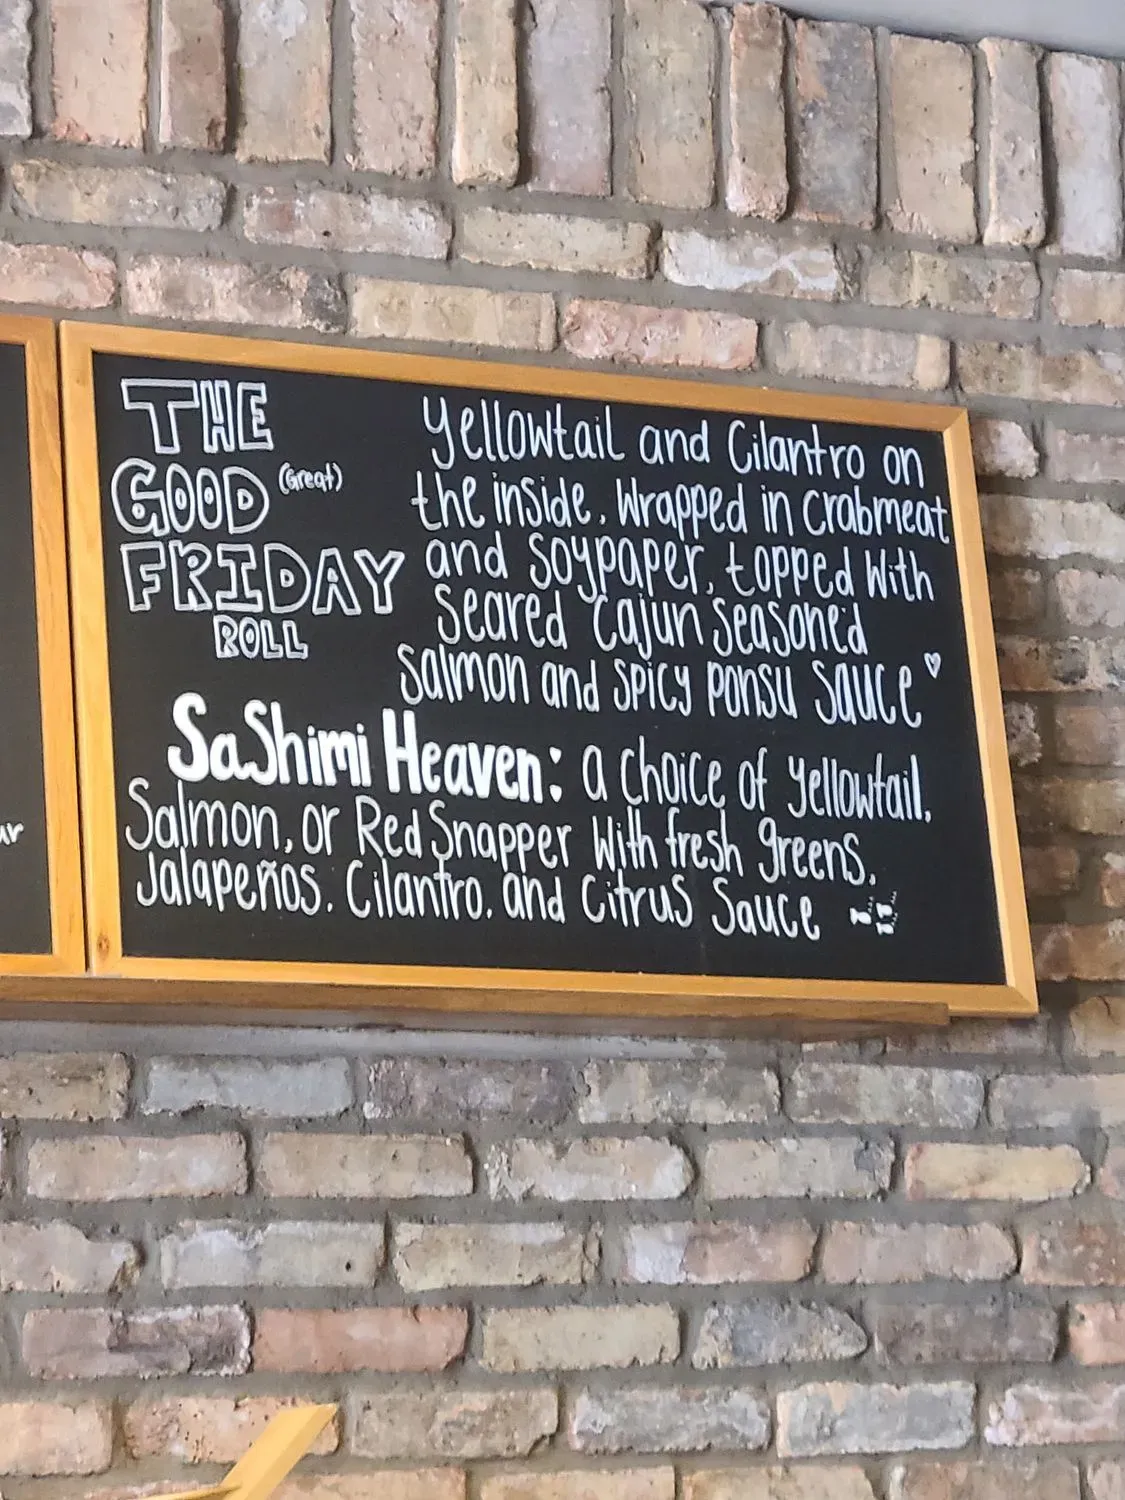 THE
GOOD (Great)
FRIDAY
ROLL
Yellowtail and Cilantro on
the inside, Wrapped in Crabmeat
and Soypaper, topped With
Seared Cajun Seasoned
Salmon and Spicy Ponsu Sauce
SaShimi Heaven: a Choice of Yellowtail,
Salmon, or Red Snapper With fresh greens,
Jalapeños, Cilantro, and Citrus Sauce
ur